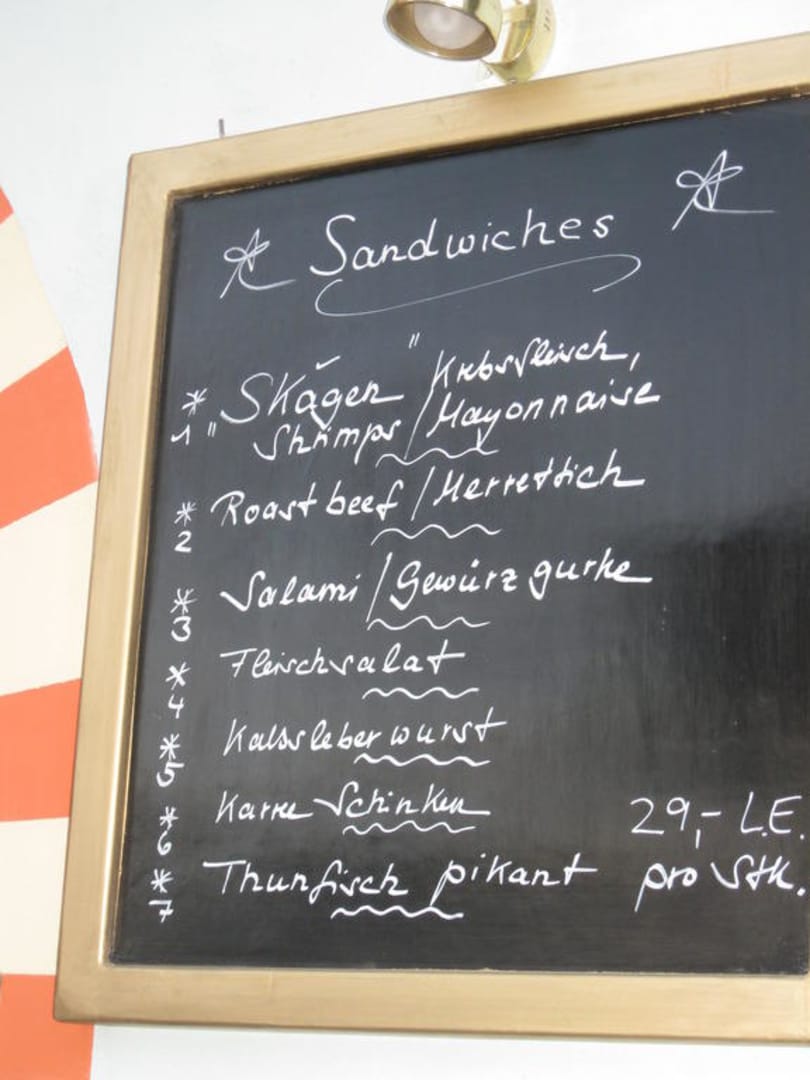 Sandwiches
* "Skågen" Krebsfleisch,
1 Shrimps / Mayonnaise
* Roastbeef / Merrettich
2
* Salami / Gewürzgurke
3
* Fleischsalat
4
* Kalbsleberwurst
5
* Karree Schinken
6
29,- L.E.
* Thunfisch pikant pro Stk.
7